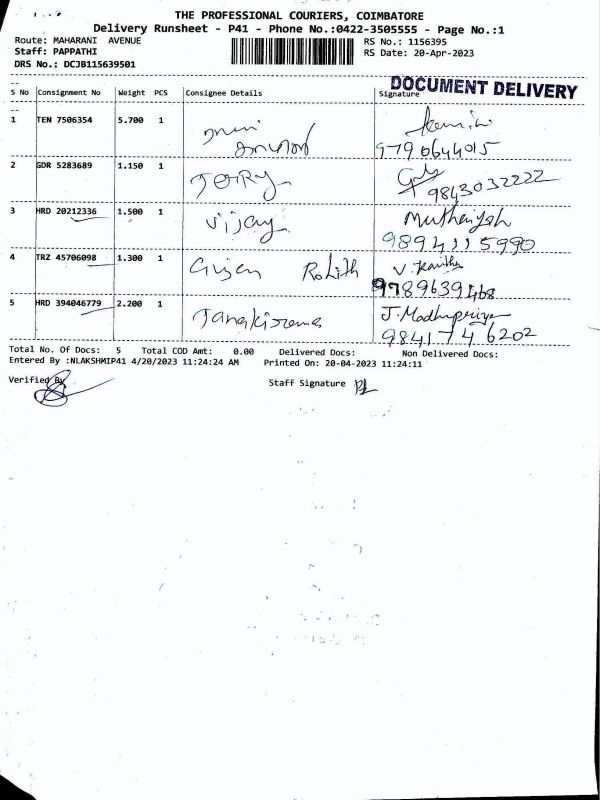 THE PROFESSIONAL COURIERS, COIMBATORE
Delivery Runsheet - P41 - Phone No.:0422-3505555 - Page No.:1
Route: MAHARANI AVENUE
RS No.: 1156395
Staff: PAPPATHI
RS Date: 20-Apr-2023
DRS No.: DCJB115639501
DOCUMENT DELIVERY
S No Consignment No Weight PCS Consignee Details Signature
1 TEN 7506354 5.700 1
9790644015
2 GDR 5283689 1.150 1 JERRY
9843032222
3 HRD 20212336 1.500 1 Vijay Muthaiyah
9894115990
4 TRZ 45706098 1.300 1 Rohith V. Kavitha
9789639468
5 HRD 394046779 2.200 1 J. Madhupriya
9841746202
Total No. Of Docs: 5 Total COD Amt: 0.00 Delivered Docs: Non Delivered Docs:
Entered By :NLAKSHMIP41 4/20/2023 11:24:24 AM Printed On: 20-04-2023 11:24:11
Verified By Staff Signature